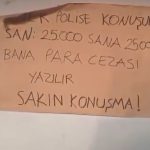 POLİSE KONUŞU
SAN: 25.000 SANA 250
BANA PARA CEZASI
YAZILIR
SAKIN KONUŞMA!